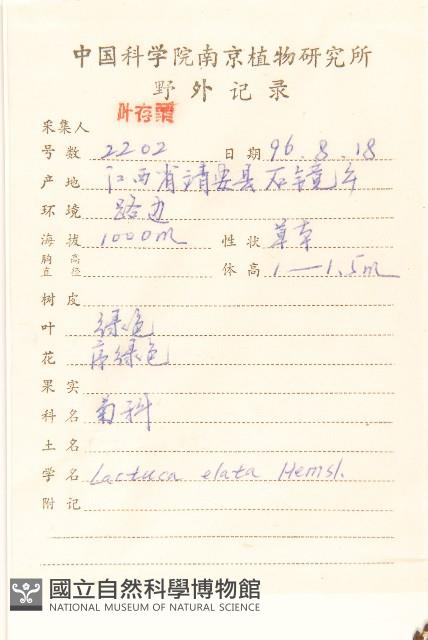 中国科学院南京植物研究所
野外记录
采集人 叶存粟
号数 2202 日期 96.8.18
产地 江西省靖安县石镜乡
环境 路边
海拔 1000m 性状 草本
胸高直径 体高 1—1.5m
树皮
叶 绿色
花 序绿色
果实
科名 菊科
土名
学名 Lactuca elata Hemsl.
附记
國立自然科學博物館
NATIONAL MUSEUM OF NATURAL SCIENCE